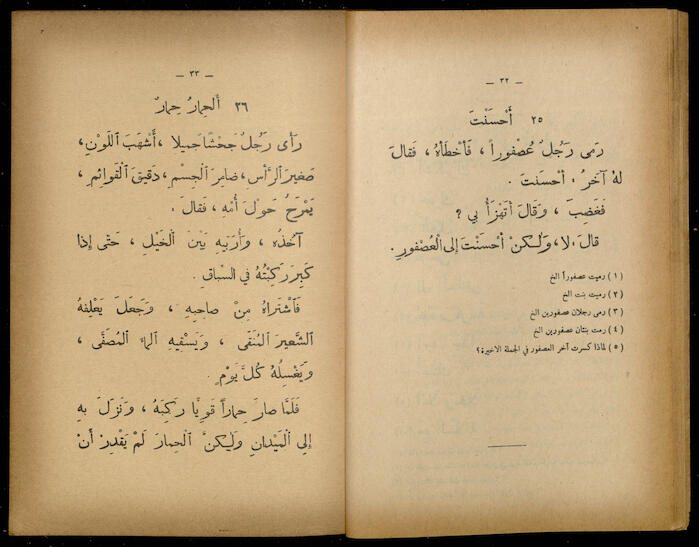 — ٣٢ —
٢٥ أَحْسَنْتَ
رَمَى رَجُلٌ عُصْفُوراً ، فَأَخْطَأَهُ ، فَقَالَ
لَهُ آخَرُ ، أَحْسَنتَ .
فَغَضِبَ ، وَقَالَ أَتَهْزَأُ بي ؟
قَالَ ، لا ، وَلكِنْ أَحْسَنْتَ إِلى الْعُصْفُورِ .
( ١ ) رميت عصفوراً الخ
( ٢ ) رميت بنت الخ
( ٣ ) رمى رجلان عصفورين الخ
( ٤ ) رمت بنتان عصفورين الخ
( ٥ ) لماذا كسرت آخر العصفور في الجملة الاخيرة؟
— ٣٣ —
٢٦ أَلحِمارُ حِمارٌ
رَأى رَجُلٌ جَحْشًا جَميلا ، أَشْهَبَ اَللَّوْنِ ،
صَغيرَ الرَّأْسِ ، ضامِرَ الْجِسْمِ ، دَقيقَ الْقَوائِمِ ،
يَمْرَحُ حَوْلَ أُمِّهِ ، فَقالَ .
آخُذُه ، وَأُرَبّيهِ بَيْنَ الْخَيْلِ ، حَتّى إِذا
كَبِرَ رَكِبْتُهُ في السِّباقِ .
فَاشْتَراهُ مِنْ صاحِبِهِ ، وَجَعَلَ يَعْلِفُهُ
الشَّعيرَ المُنَقّى ، وَيَسْقيهِ الماءَ المُصَفّى ،
وَيَغْسِلُهُ كُلَّ يَوْمٍ .
فَلَمّا صارَ حِماراً قَوِيًّا رَكِبَهُ ، وَنَزَلَ بِهِ
إِلى الْمَيْدانِ وَلكِنَّ الْحِمارَ لَمْ يَقْدِرْ أَنْ